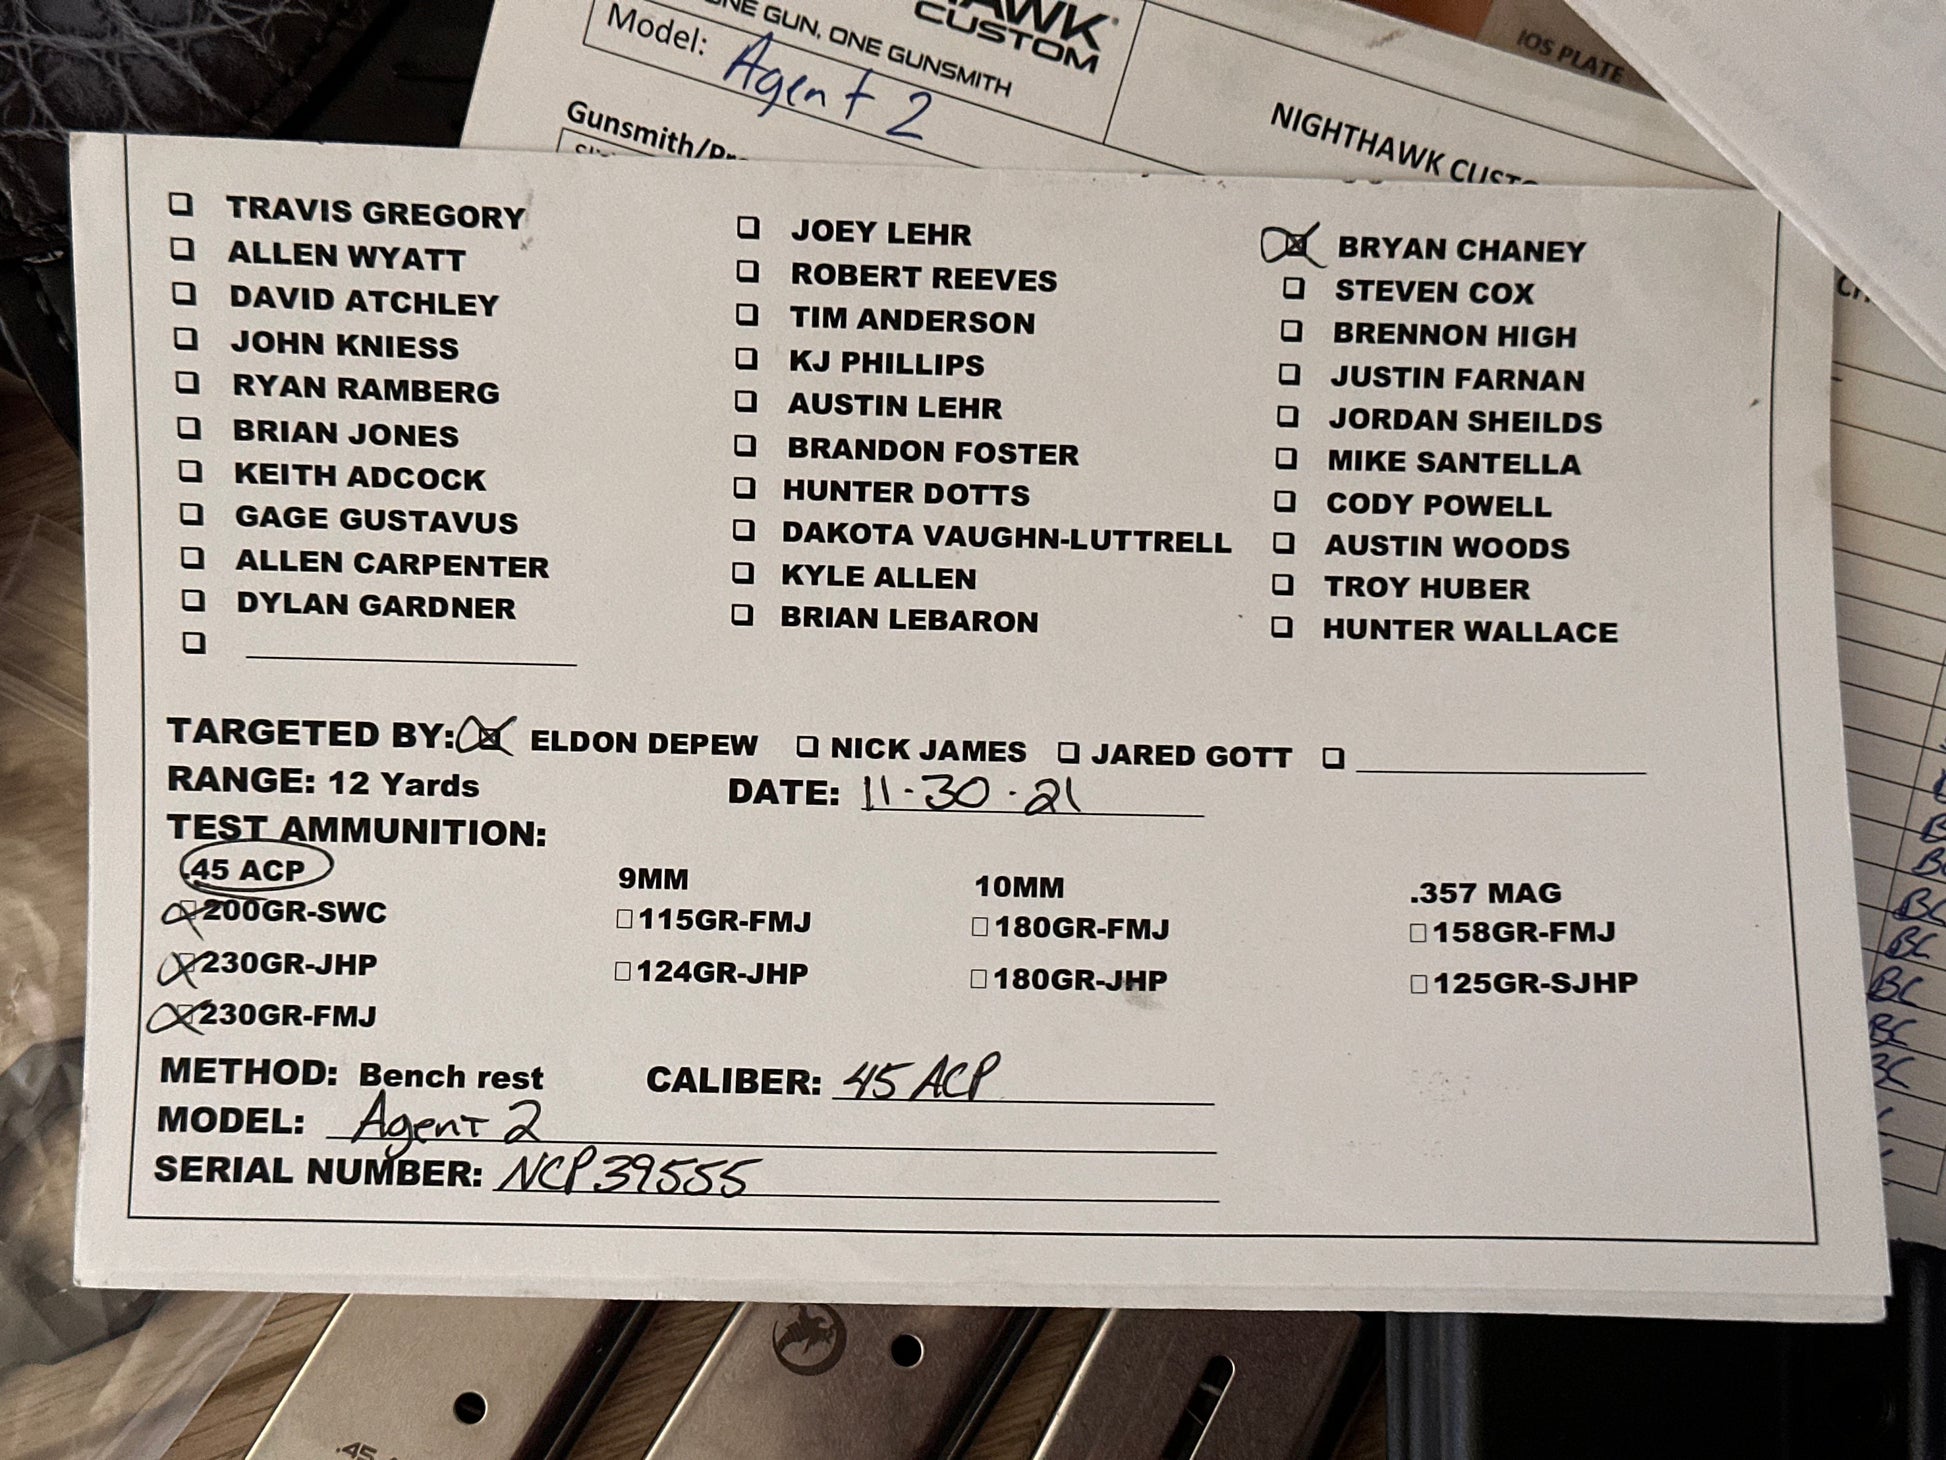 CUSTOM
ONE GUN, ONE GUNSMITH
Model: Agent 2
NIGHTHAWK
IOS PLATE
TRAVIS GREGORY
ALLEN WYATT
DAVID ATCHLEY
JOHN KNIESS
RYAN RAMBERG
BRIAN JONES
KEITH ADCOCK
GAGE GUSTAVUS
ALLEN CARPENTER
DYLAN GARDNER
JOEY LEHR
ROBERT REEVES
TIM ANDERSON
KJ PHILLIPS
AUSTIN LEHR
BRANDON FOSTER
HUNTER DOTTS
DAKOTA VAUGHN-LUTTRELL
KYLE ALLEN
BRIAN LEBARON
BRYAN CHANEY
STEVEN COX
BRENNON HIGH
JUSTIN FARNAN
JORDAN SHEILDS
MIKE SANTELLA
CODY POWELL
AUSTIN WOODS
TROY HUBER
HUNTER WALLACE
TARGETED BY: ELDON DEPEW NICK JAMES JARED GOTT
RANGE: 12 Yards DATE: 11-30-21
TEST AMMUNITION:
.45 ACP 9MM 10MM .357 MAG
200GR-SWC 115GR-FMJ 180GR-FMJ 158GR-FMJ
230GR-JHP 124GR-JHP 180GR-JHP 125GR-SJHP
230GR-FMJ
METHOD: Bench rest CALIBER: 45 ACP
MODEL: Agent 2
SERIAL NUMBER: NCP39555
BC
BC
BC
BC
BC
.45